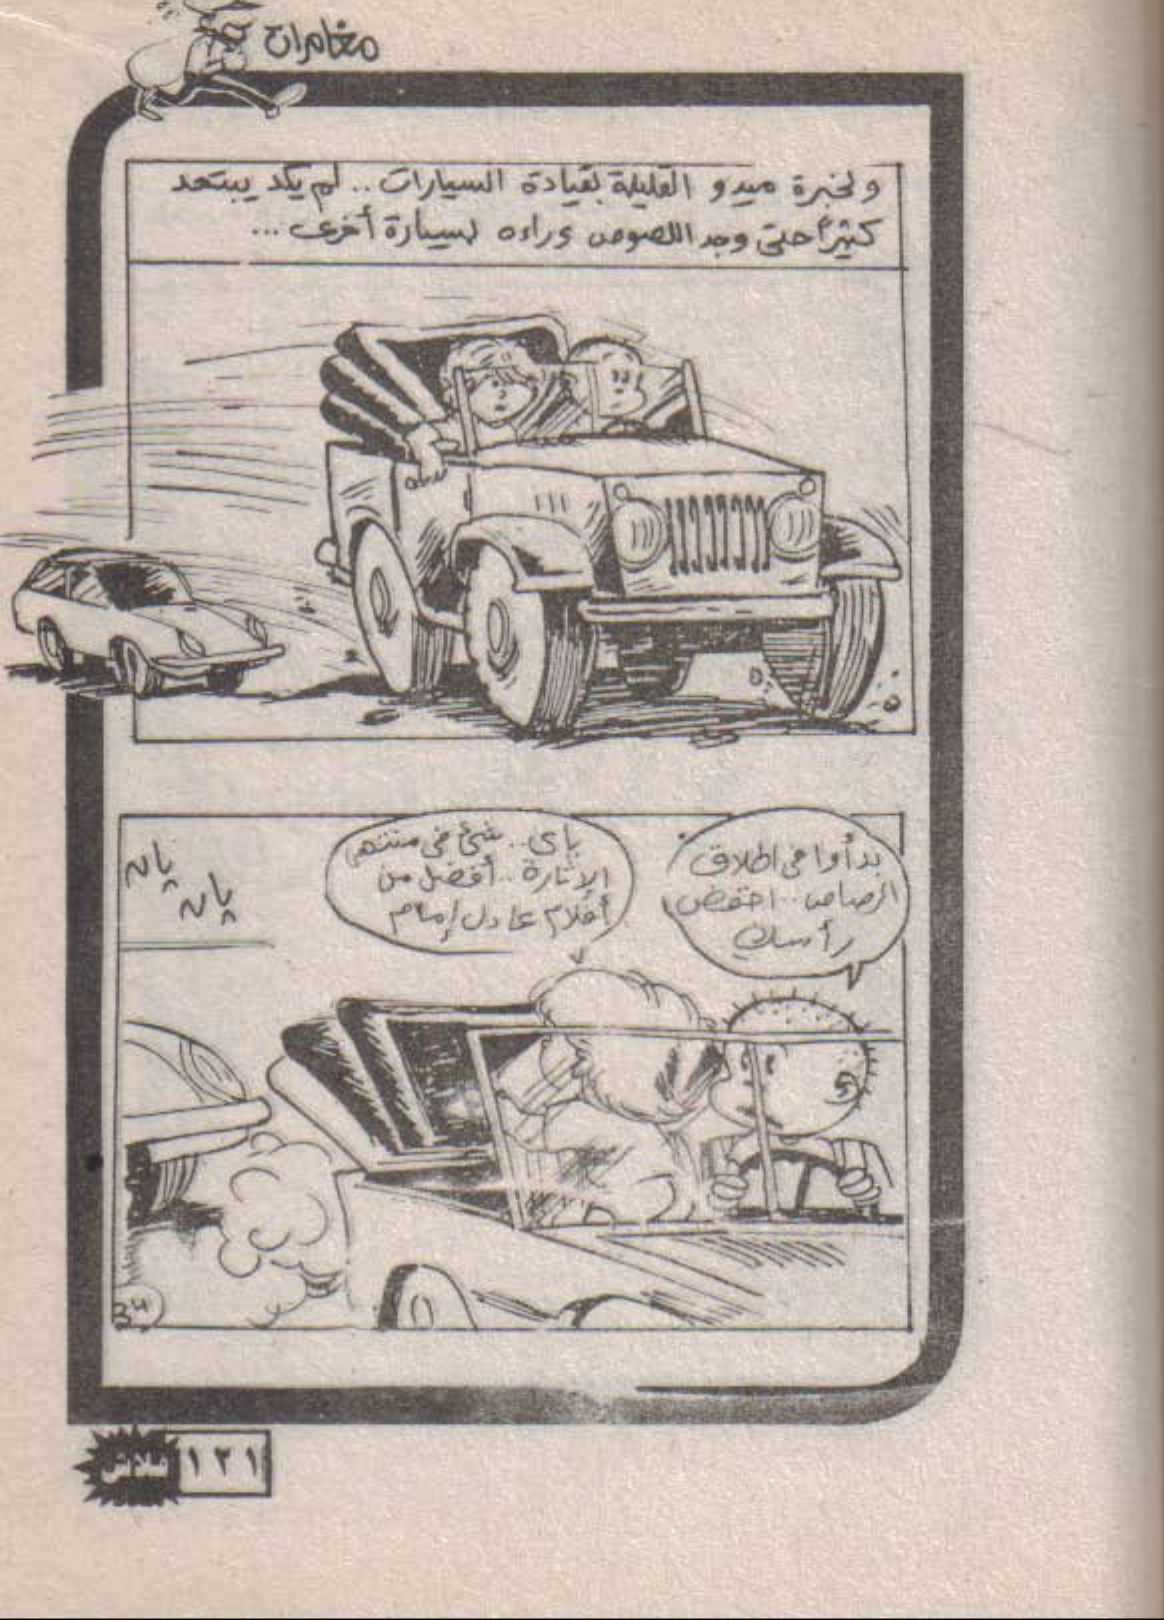 مغامرات
ولخبرة ميدو القليلة بقيادة السيارات .. لم يكد يبتعد
كثيراً حتى وجد اللصوص وراءه بسيارة أخرى ...
بدأوا فى اطلاق
الرصاص .. اخفض
رأسك
ياى .. شئ فى منتهى
الإثارة .. أفضل من
أفلام عادل إمام
پان
پان
34
١٢١
فلاش